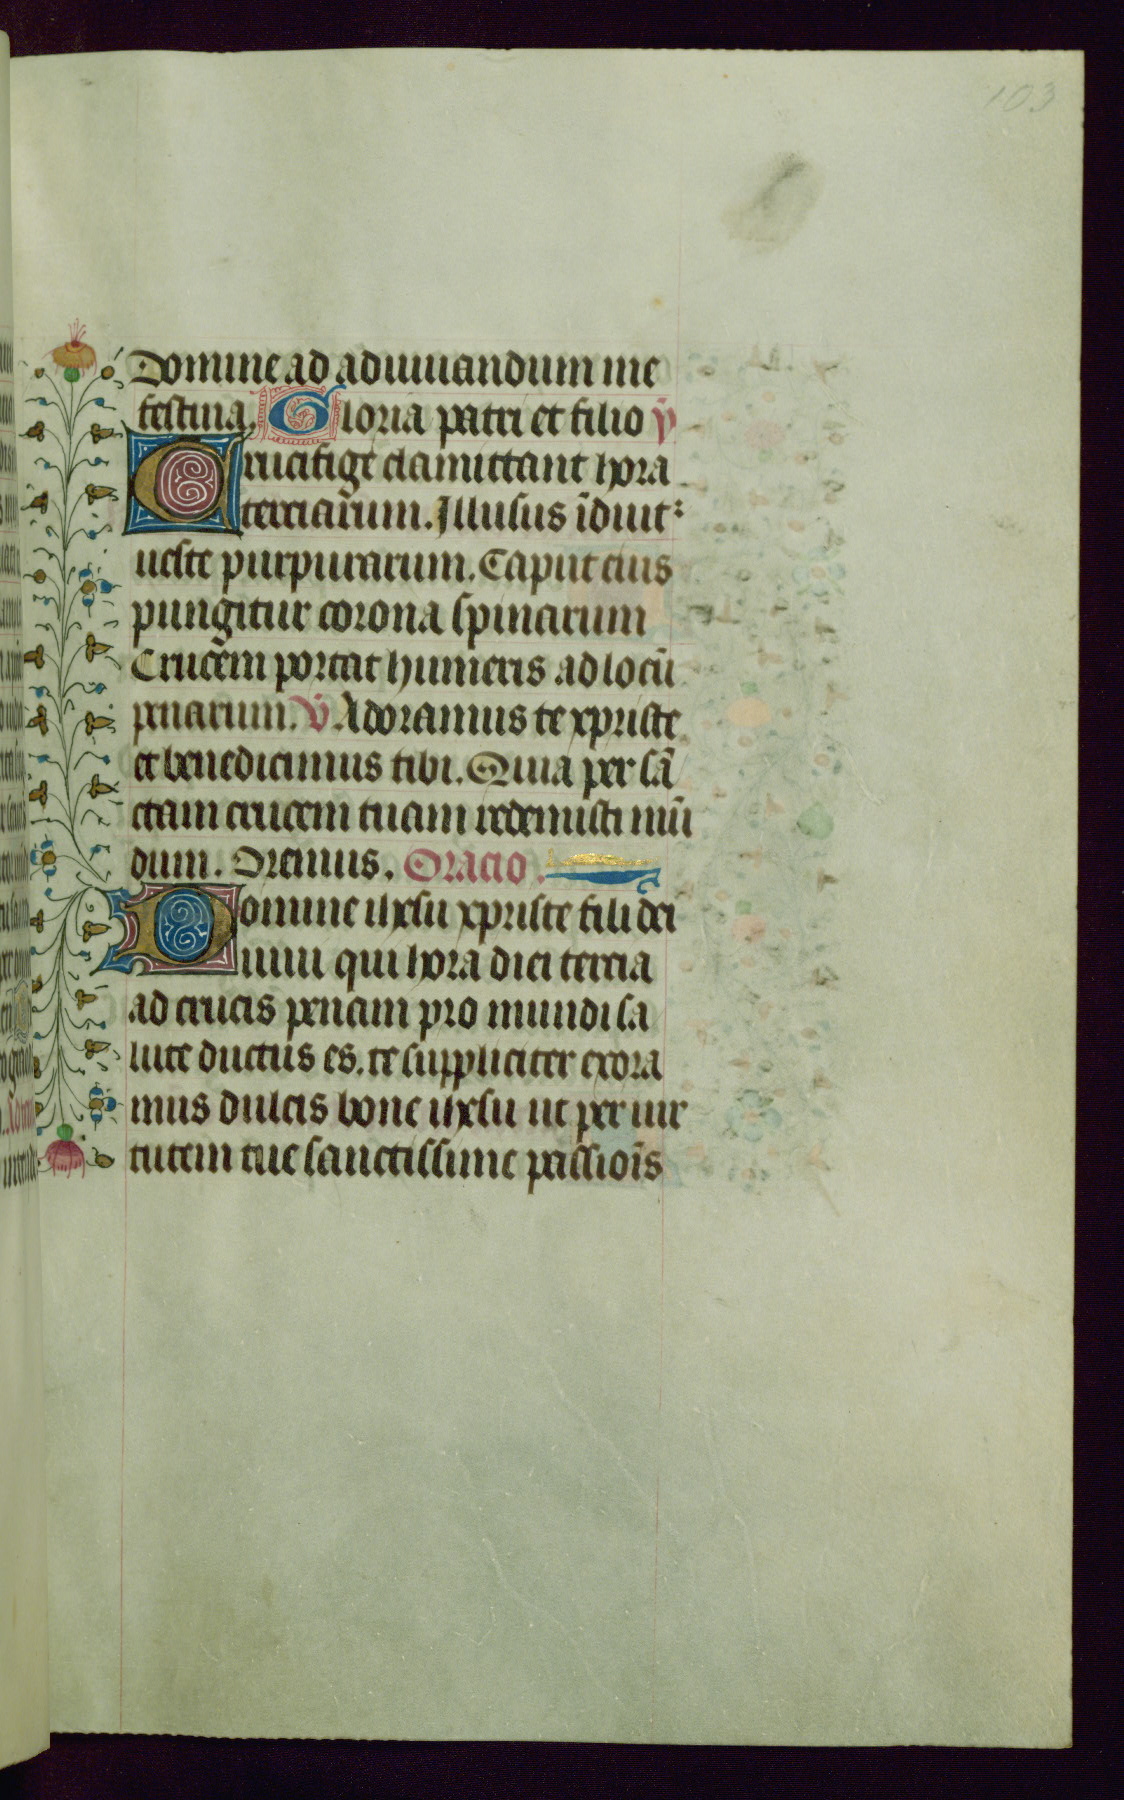 103
Domine ad adiuuandum me
festina. Gloria patri et filio ẏ
Crucifige clamittant hora
terciar̄um. Illusus īduit᷑
ueste purpurarum. Caput eius
pungitur corona spinarum
Crucem portat humeris ad locū
penarum. v̇ Adoramus te xpriste
et benedicimus tibi. Quia per sā
ctam crucem tuam redemisti mū
dum. Oremus. Oracio.
Domine ihesu xpriste fili dei
uiui qui hora diei tercia
ad crucis penam pro mundi sa
lute ductus es. te suppliciter exora
mus dulcis bone ihesu ut per uir
tutem tue sanctissime passiōis